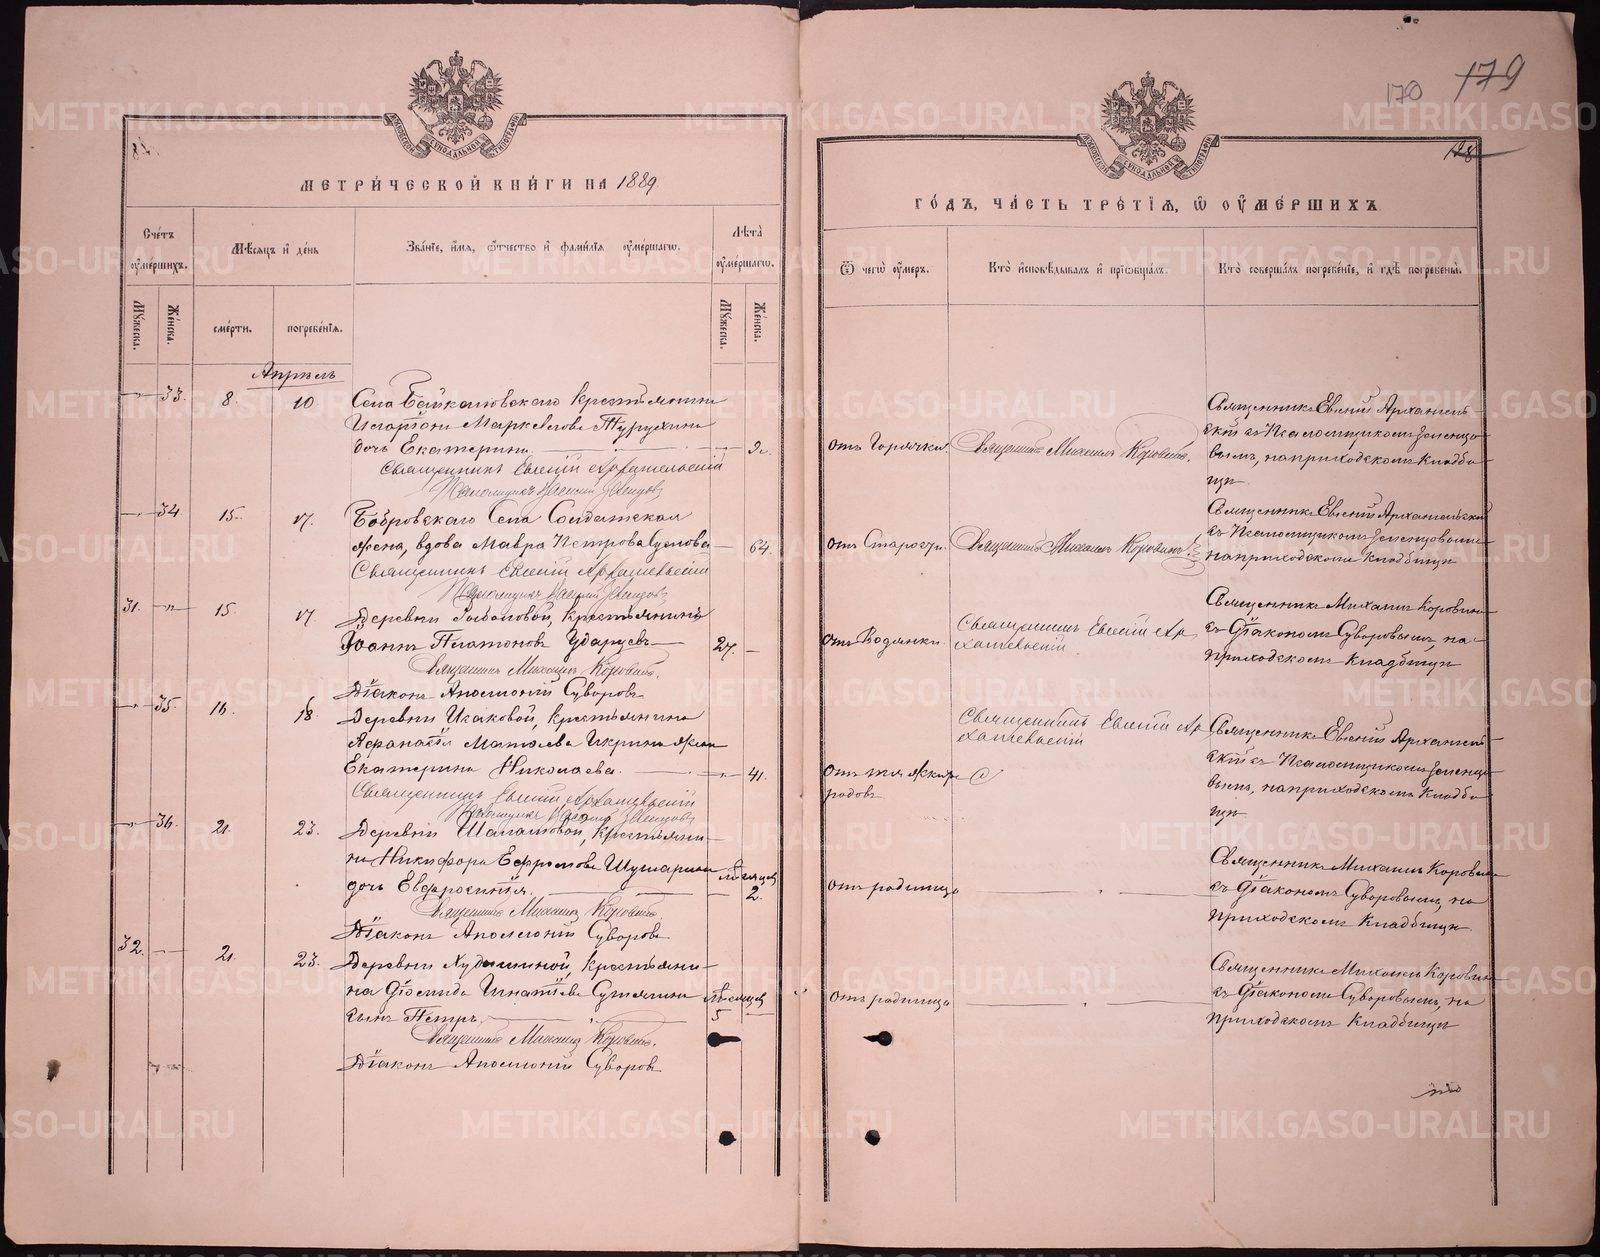 179
170
128
МОСКОВСКОЙ СѴНОДАЛЬНОЙ ТИПОГРАФІИ
МЕТРИЧЕСКОЙ КНИГИ НА 1889
Счетъ оумершихъ.
Мѣсяцъ и день
Званіе, имя, отчество и фамилія оумершаго.
Лѣта оумершаго.
Мужеска.
Женска.
смерти.
погребенія.
Мужеска.
Женска.
Апрѣль
33. 8. 10 Села Байкаловскаго крестьянина
Турухина
дочь Екатерина. 2.
Священникъ Евгеній Архангельскій
Псаломщикъ
34. 15. 17. Бобровскаго Села Солдатская
жена, вдова Мавра Петрова 64.
Священникъ Евгеній Архангельскій
Псаломщикъ
31. 15 17 Деревни крестьянинъ
Іоаннъ Платоновъ Ударцевъ 27.
Священникъ Михаилъ Коровинъ.
Діаконъ Аполлоній Суворовъ
35. 16. 18. Деревни Исаковой, крестьянина
Аѳанасія Матѳеева Икрина жена
Екатерина Николаева. 41.
Священникъ Евгеній Архангельскій
Псаломщикъ
36. 21. 23. Деревни крестьяни-
на Никифора Ефремова Шушарина мѣсяцев
дочь Евфросинія. 2.
Священникъ Михаилъ Коровинъ.
Діаконъ Аполлоній Суворовъ
32. 21. 23. Деревни крестьяни-
на Діомида Игнатіева мѣсяцев
сынъ Петръ. 5
Священникъ Михаилъ Коровинъ.
Діаконъ Аполлоній Суворовъ
ГОДЪ, ЧАСТЬ ТРЕТІЯ, Ѿ ОУМЕРШИХЪ
Ѿ чего оумеръ.
Кто исповѣдывалъ и пріобщалъ.
Кто совершалъ погребеніе, и гдѣ погребены.
отъ Горячки. Священникъ Михаилъ Коровинъ.
Священникъ Евгеній Архангель-
скій съ Псаломщикомъ
вымъ, на приходскомъ Кладби
щи
отъ Старости. Священникъ Михаилъ Коровинъ.
Священникъ Евгеній Архангельскій
съ Псаломщикомъ
на приходскомъ Кладбищи
отъ Водянки Священникъ Евгеній Ар
хангельскій
Священникъ Михаилъ Коровинъ
съ Діакономъ Суворовымъ, на
приходскомъ Кладбищи
отъ тяжкихъ
родовъ
Священникъ Евгеній Ар
хангельскій
Священникъ Евгеній Архангель
скій съ Псаломщикомъ
вымъ, на приходскомъ Кладби
щи
отъ родимца
Священникъ Михаилъ Коровинъ
съ Діакономъ Суворовымъ, на
приходскомъ Кладбищи.
отъ родимца
Священникъ Михаилъ Коровинъ
съ Діакономъ Суворовымъ, на
приходскомъ Кладбищи
METRIKI.GASO-URAL.RU